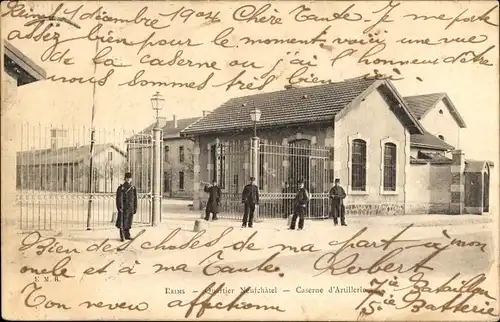 Reims, 1 décembre 1904 Chère Tante, Je me porte
assez bien pour le moment voici une vue
de la caserne ou j'ai l'honneur d'être
nous sommes très bien
Bien des choses de ma part a mon
oncle et a ma Tante. Robert
Ton neveu affectionné
E. M. R.
REIMS - Quartier Neufchâtel - Caserne d'Artillerie
Bataillon
Batterie